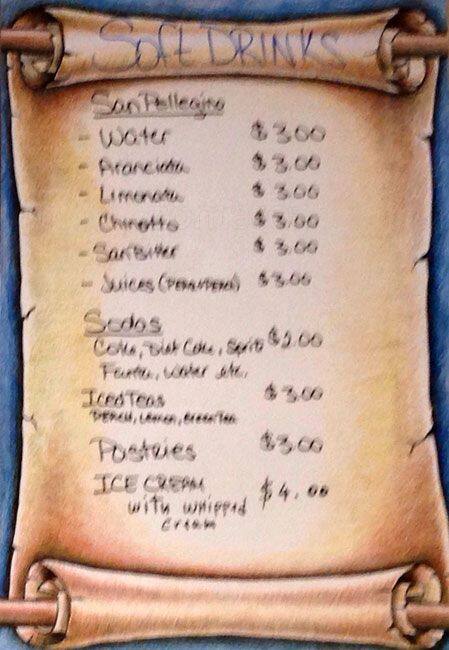 Soft DRINKS
San Pellegrino
- Water $3.00
- Aranciata $3.00
- Limonata $3.00
- Chinotto $3.00
- San Bitter $3.00
- Juices (PEAR/PEACH) $3.00
Sodas
Coke, Diet Coke, Sprite $2.00
Fanta, Water etc.
Iced Teas $3.00
PEACH, Lemon, Green Tea
Pastries $3.00
ICE CREAM $4.00
with whipped
cream